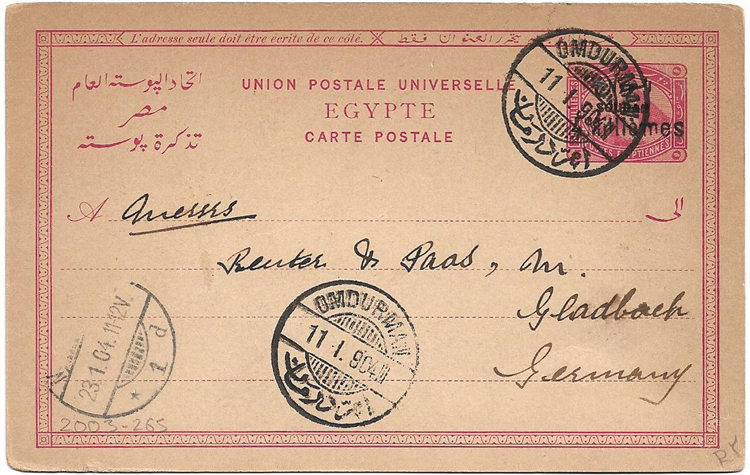 L'adresse seule doit être écrite de ce côté.
اتحاد البوستة العام
مصر
تذكرة بوستة
UNION POSTALE UNIVERSELLE
EGYPTE
CARTE POSTALE
OMDURMAN
11 I
ام درمان
SOUDAN
Milliemes
A Messrs
الى
Reuter & Paas, M.
Gladbach
Germany
OMDURMAN
11 I 904
ام درمان
23.1.04.11-12V.
* 1 d
2003-265